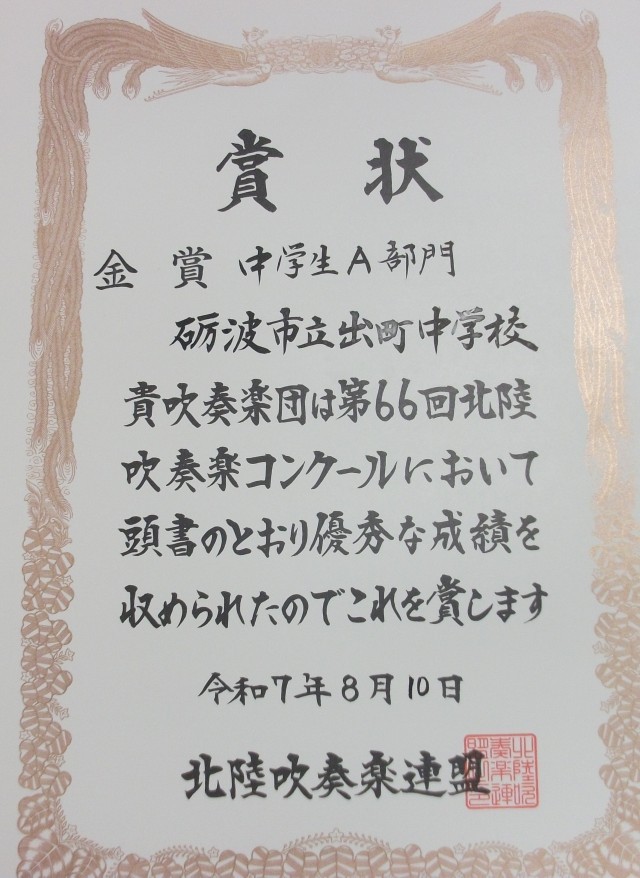 賞状
金賞 中学生A部門
砺波市立出町中学校
貴吹奏楽団は第66回北陸
吹奏楽コンクールにおいて
頭書のとおり優秀な成績を
収められたのでこれを賞します
令和7年8月10日
北陸吹奏楽連盟